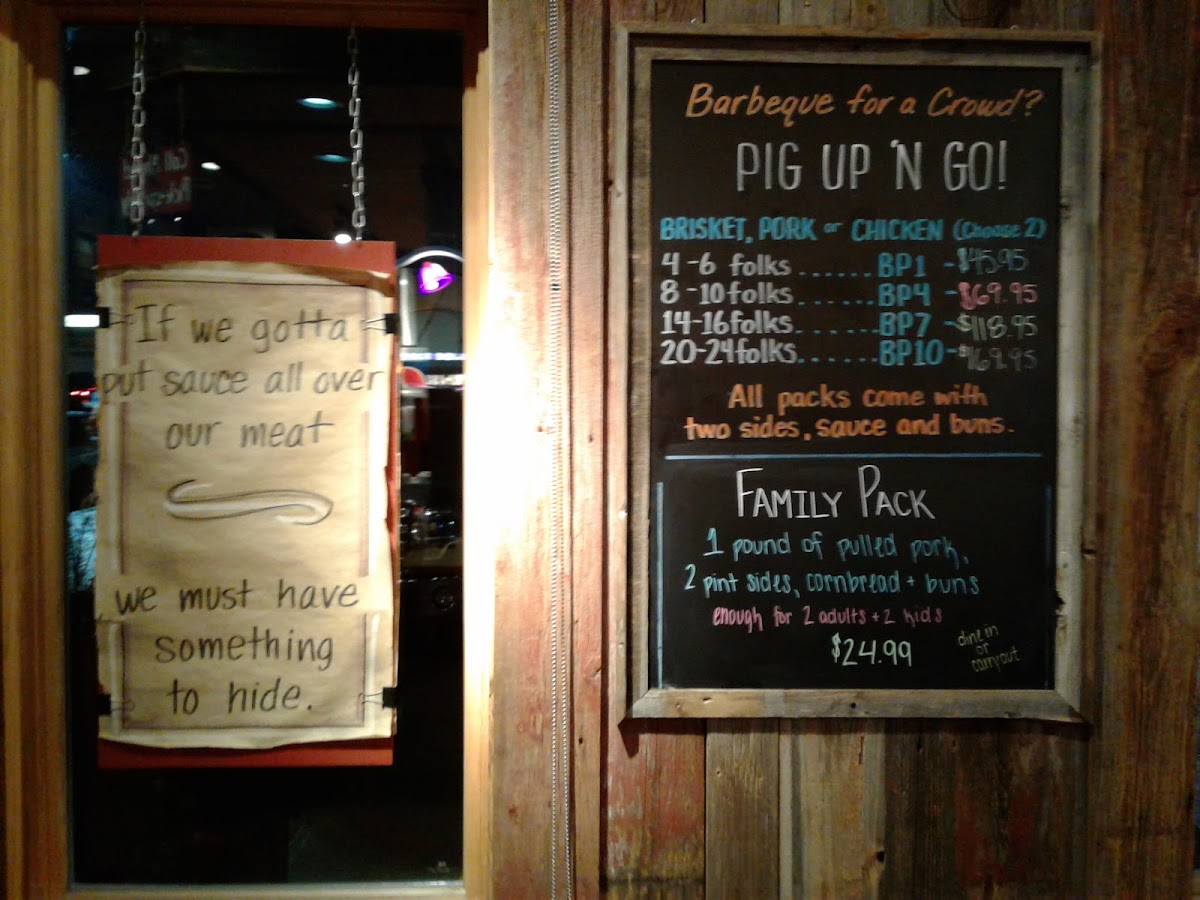 If we gotta
put sauce all over
our meat
we must have
something
to hide.
Barbeque for a Crowd?
PIG UP 'N GO!
BRISKET, PORK or CHICKEN (Choose 2)
4-6 folks ...... BP1 - $45.95
8-10 folks ...... BP4 - $69.95
14-16 folks ...... BP7 - $118.95
20-24 folks ...... BP10 - $169.95
All packs come with
two sides, sauce and buns.
FAMILY PACK
1 pound of pulled pork,
2 pint sides, cornbread + buns
enough for 2 adults + 2 kids
$24.99
dine in
or
carryout